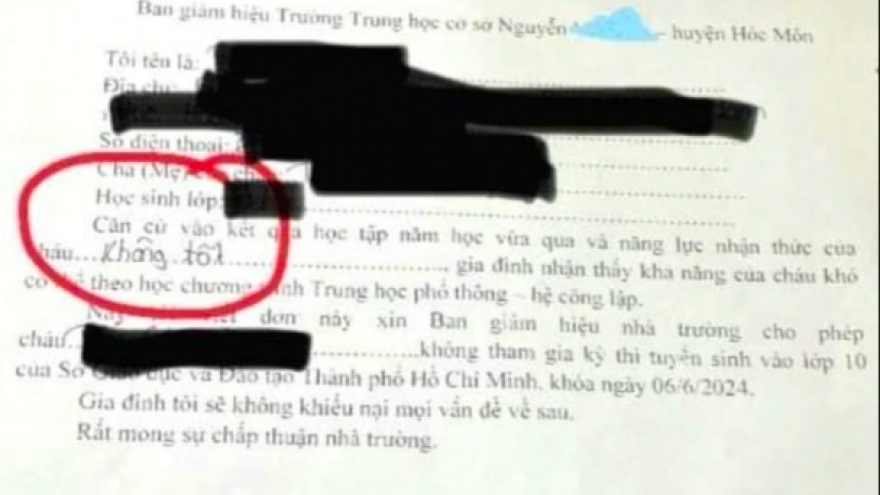 Ban giám hiệu Trường Trung học cơ sở Nguyễn - huyện Hóc Môn
Tôi tên là:
Địa chỉ:
Số điện thoại:
Cha (Mẹ)
Học sinh lớp:
Căn cứ vào kết quả học tập năm học vừa qua và năng lực nhận thức của
cháu....Không tốt..........................., gia đình nhận thấy khả năng của cháu khó
có thể theo học chương trình Trung học phổ thông – hệ công lập.
Nay viết đơn này xin Ban giám hiệu nhà trường cho phép
cháu..................không tham gia kỳ thi tuyển sinh vào lớp 10
của Sở Giáo dục và Đào tạo Thành phố Hồ Chí Minh, khóa ngày 06/6/2024.
Gia đình tôi sẽ không khiếu nại mọi vấn đề về sau.
Rất mong sự chấp thuận nhà trường.